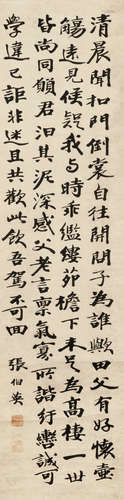 清晨聞扣門倒裳自往開問子為誰歟田父有好懷壺
觴遠見候疑我與時乖繿縷茆檐下未足為高棲一世
皆尚同願君汨其泥深感父老言稟氣寡所諧紆轡誠可
學違己詎非迷且共歡此飲吾駕不可回
張伯英